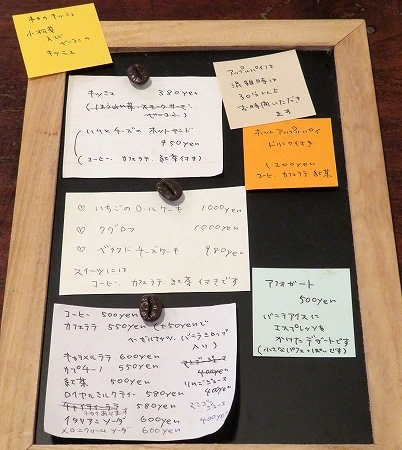 本日のキッシュ
小松菜
えび
ベーコンの
キッシュ
キッシュ 380yen
(ほうれん草 スモークサーモン
ベーコン)
(いちじくとチーズの ホットサンド
950yen
(コーヒー. カフェラテ. 紅茶付き)
アップルパイは
混雑時は
30分以上
お時間いただき
ます
ホットアップルパイ
ドリンク付き
1200yen
コーヒー. カフェラテ. 紅茶
♡ いちごのロールケーキ 1000yen
♡ クグロフ 1000yen
♡ ベイクドチーズケーキ 980yen
スイーツには
コーヒー. カフェラテ. 紅茶 付きです
アフォガート
500yen
バニラアイスに
エスプレッソを
かけたデザートです
(小さなパフェっぽいです)
コーヒー 500yen
カフェラテ 550yen (+50yenで
ヘーゼルナッツ. バニラシロップ
入り)
キャラメルラテ 600yen
カプチーノ 550yen
紅茶 500yen
ロイヤルミルクティー 580yen
580yen
イタリアンソーダ 600yen
メロンクリームソーダ 600yen
400yen
りんごジュース
400yen
400yen